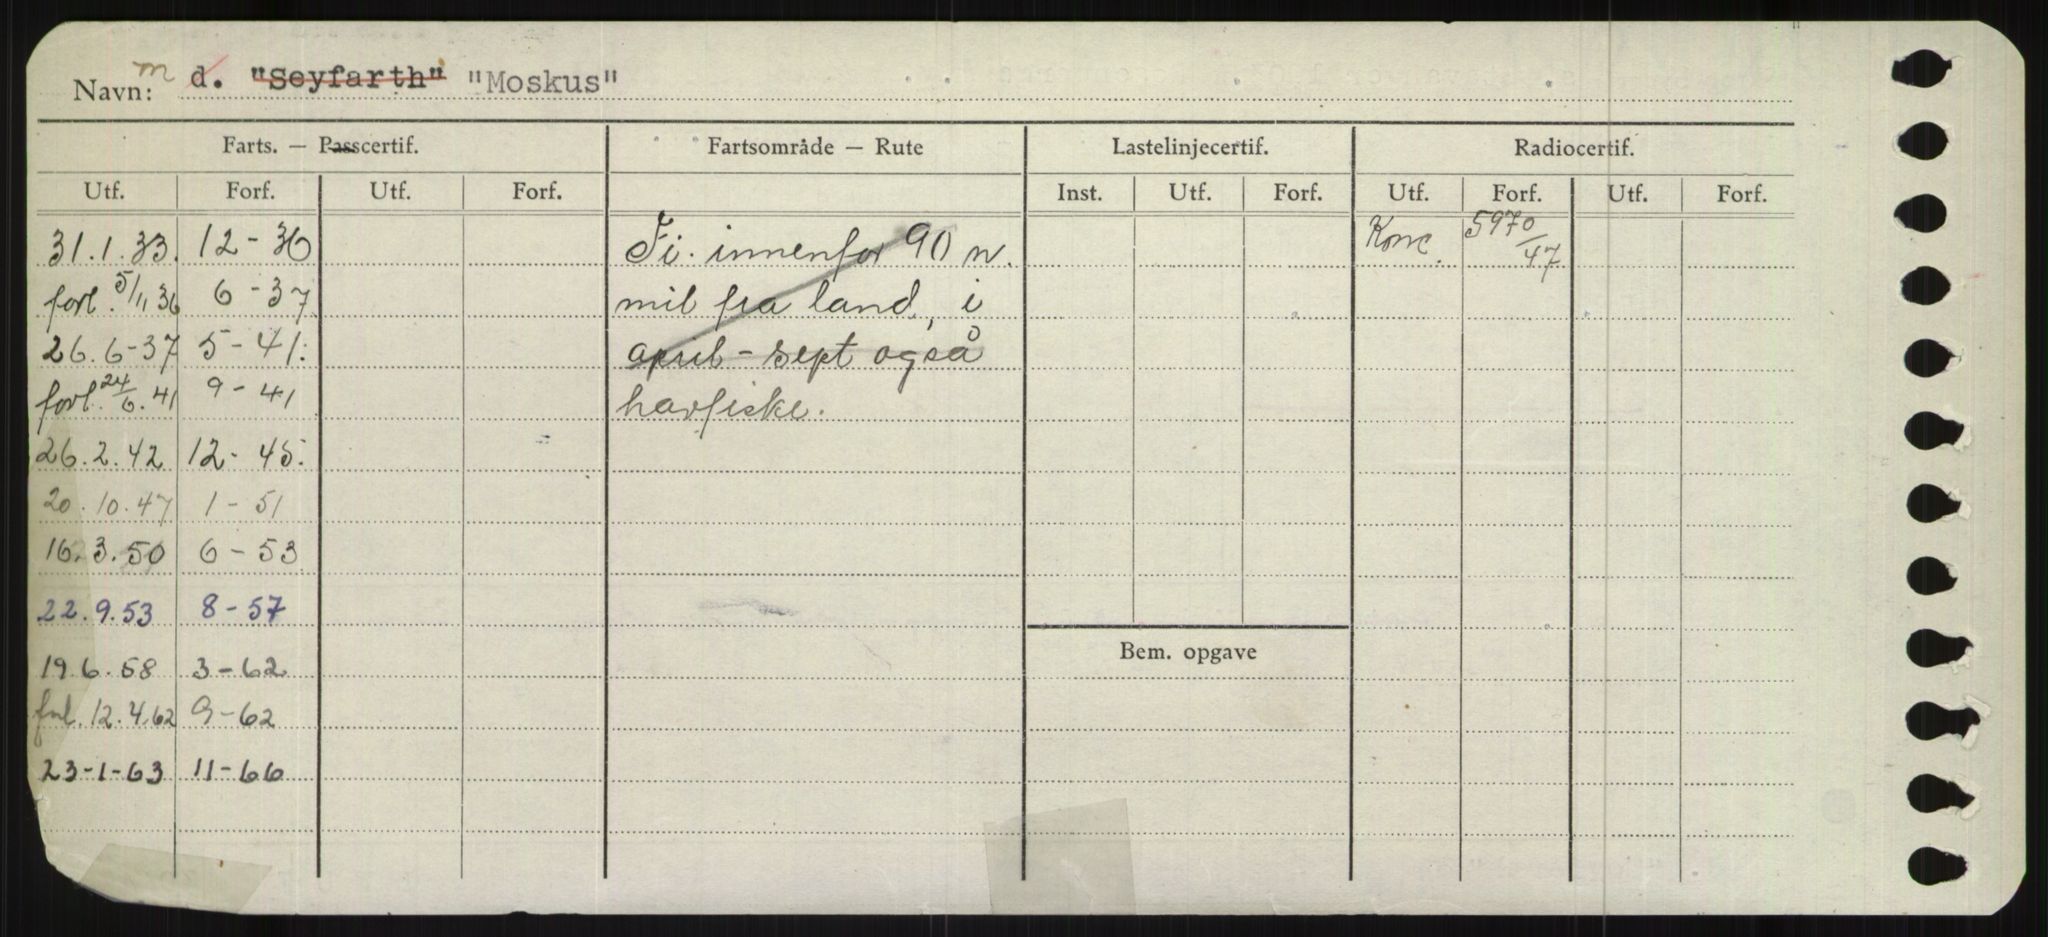 Navn: m d. "Seyfarth" "Moskus"
Farts. — Passcertif. Fartsområde — Rute Lastelinjecertif. Radiocertif.
Utf. Forf. Utf. Forf. Inst. Utf. Forf. Utf. Forf. Utf. Forf.
31.1.33. 12-36 Fi. innenfor 90 n. Konc. 5970/47
forl. 5/11 36 6-37 mil fra land, i
26.6-37 5-41. april-sept også
forl. 24/6.41 9-41 havfiske.
26.2.42 12-45.
20.10.47 1-51
16.3.50 6-53
22.9.53 8-57
Bem. opgave
19.6.58 3-62
forl. 12.4.62 9-62
23-1-63 11-66